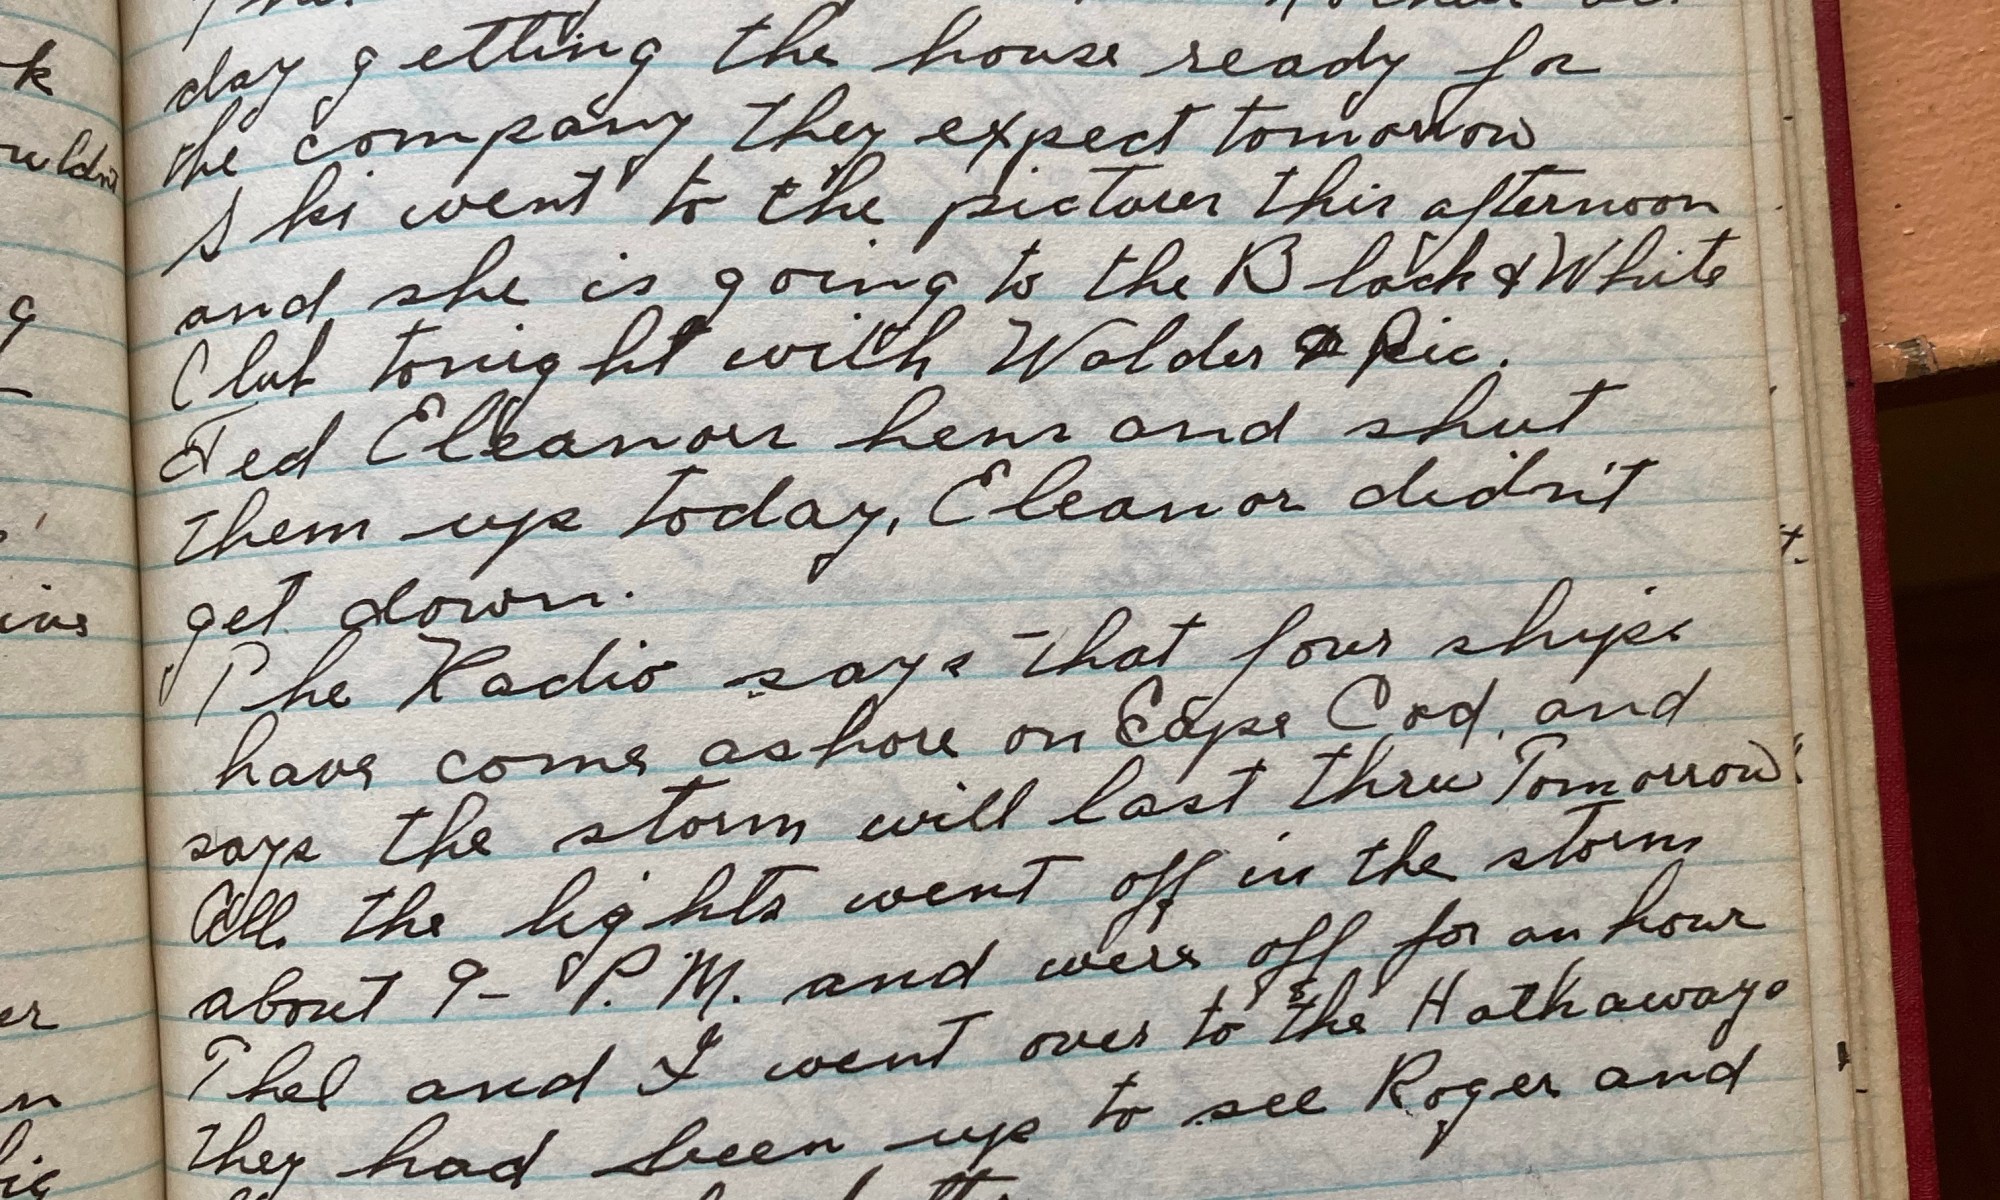 day getting the house ready for
the company they expect tomorrow
Ski went to the pictures this afternoon
and she is going to the Black & White
Club tonight with Walder & Ric.
Fed Eleanors hens and shut
them up today, Eleanor didn't
get down.
The Radio says that four ships
have come ashore on Cape Cod, and
says the storm will last thru Tomorrow
All the lights went off in the storm
about 9- P.M. and were off for an hour
Thel and I went over to the Hathaways
they had been up to see Roger and